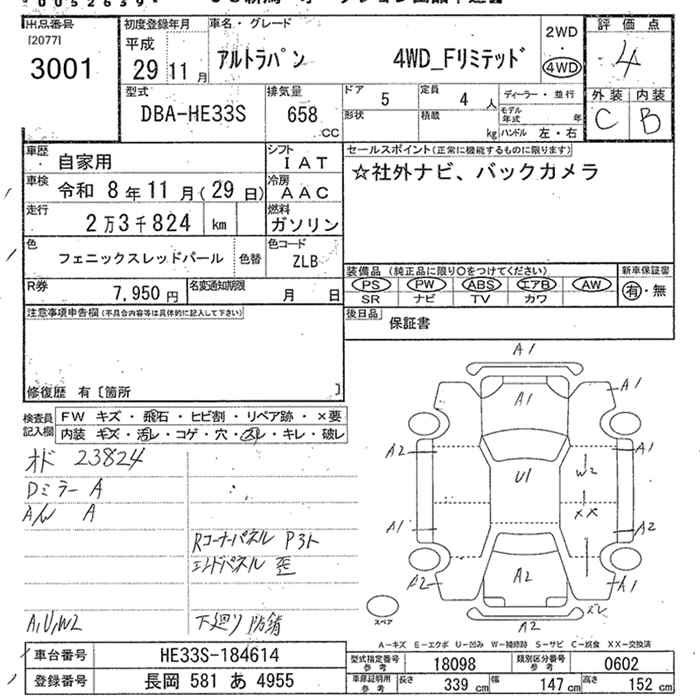 00526
出品番号
[2077]
3001
初度登録年月
平成
29 11 月
車名・グレード
アルトラパン 4WD_Fリミテッド
2WD
・
4WD
評価点
4
外装 内装
C B
型式
DBA-HE33S
排気量
658
CC
ドア 5
定員 4 人
ディーラー・並行
形状
積載 kg
モデル年式 年
ハンドル 左・右
車歴
自家用
シフト
IAT
車検 令和 8年 11月(29日)
冷房
AAC
走行
2万3千824 km
燃料
ガソリン
色
フェニックスレッドパール
色替
色コード
ZLB
R券
7,950 円
名変通知期限
月 日
セールスポイント(正常に機能するものに限ります)
☆社外ナビ、バックカメラ
装備品(純正品に限り〇をつけてください)
PS PW ABS エアB AW
SR ナビ TV カワ
新車保証書
有・無
後日品 保証書
注意事項申告欄(不具合内容等は具体的に記入して下さい)
修復歴 有〔箇所 〕
検査員記入欄
FW キズ・飛石・ヒビ割・リペア跡・×要
内装 キズ・汚レ・コゲ・穴・スレ・キレ・破レ
オド 23824
Dミラー A
A/W A
Rコーナーパネル P3ト
エンドパネル 歪
A,U,W2
下廻り防錆
A1
A1
A1
A2
A1
U1
W2
XX
A1
A2
A2
A2
A1
ズレ
A2
スペア
A-キズ E-エクボ U-凹み W-補修跡 S-サビ C-腐食 XX-交換済
車台番号 HE33S-184614
登録番号 長岡 581 あ 4955
型式指定番号 参考 18098
類別区分番号 参考 0602
車庫証明用 参考
長さ 339 cm
幅 147 cm
高さ 152 cm